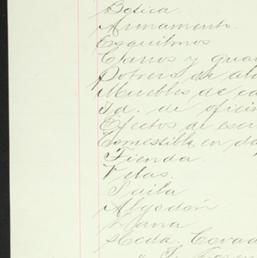 Botica
Armamento
Esquilmos
Carros y gua
Potrero de al
Muebles de ca
Id. de oficin
Efectos de escr
Comestible en de
Tienda
Velas
Jaila
Algodón
Lana
Seda,